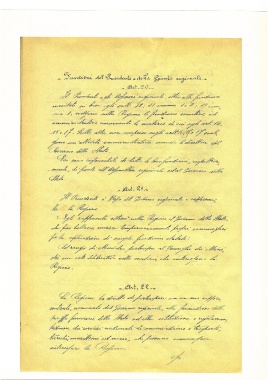 Funzioni del Presidente e della Giunta regionale
Art. 20.
Il Presidente e gli Assessori regionali, oltre alle funzioni
esercitate in base agli
svolgono nella Regione le funzioni esecutive ed
amministrative concernenti le materie di cui agli
15 e 17. Sulle altre non comprese negli
una attività amministrativa secondo le direttive del
Governo dello Stato.
Essi sono responsabili di tutte le loro funzioni, rispettiva-
mente, di fronte all'Assemblea regionale ed al Governo dello
Stato.
Art. 21
Il Presidente è Capo del Governo regionale e rappresen-
ta la Regione.
Egli rappresenta altresì nella Regione il Governo dello Stato,
che può tuttavia inviare temporaneamente propri commissari
per la esplicazione di singole funzioni statali.
Col rango di Ministro partecipa al Consiglio dei Ministri,
con voto deliberativo nelle materie che interessano la
Regione.
Art. 22
La Regione ha diritto di partecipare con un suo rappre-
sentante, nominato dal Governo regionale, alla formazione delle
tariffe ferroviarie dello Stato ed alla istituzione e regolamen-
tazione dei servizi nazionali di comunicazione e trasporti,
terrestri, marittimi ed aerei, che possano comunque
interessare la Regione.